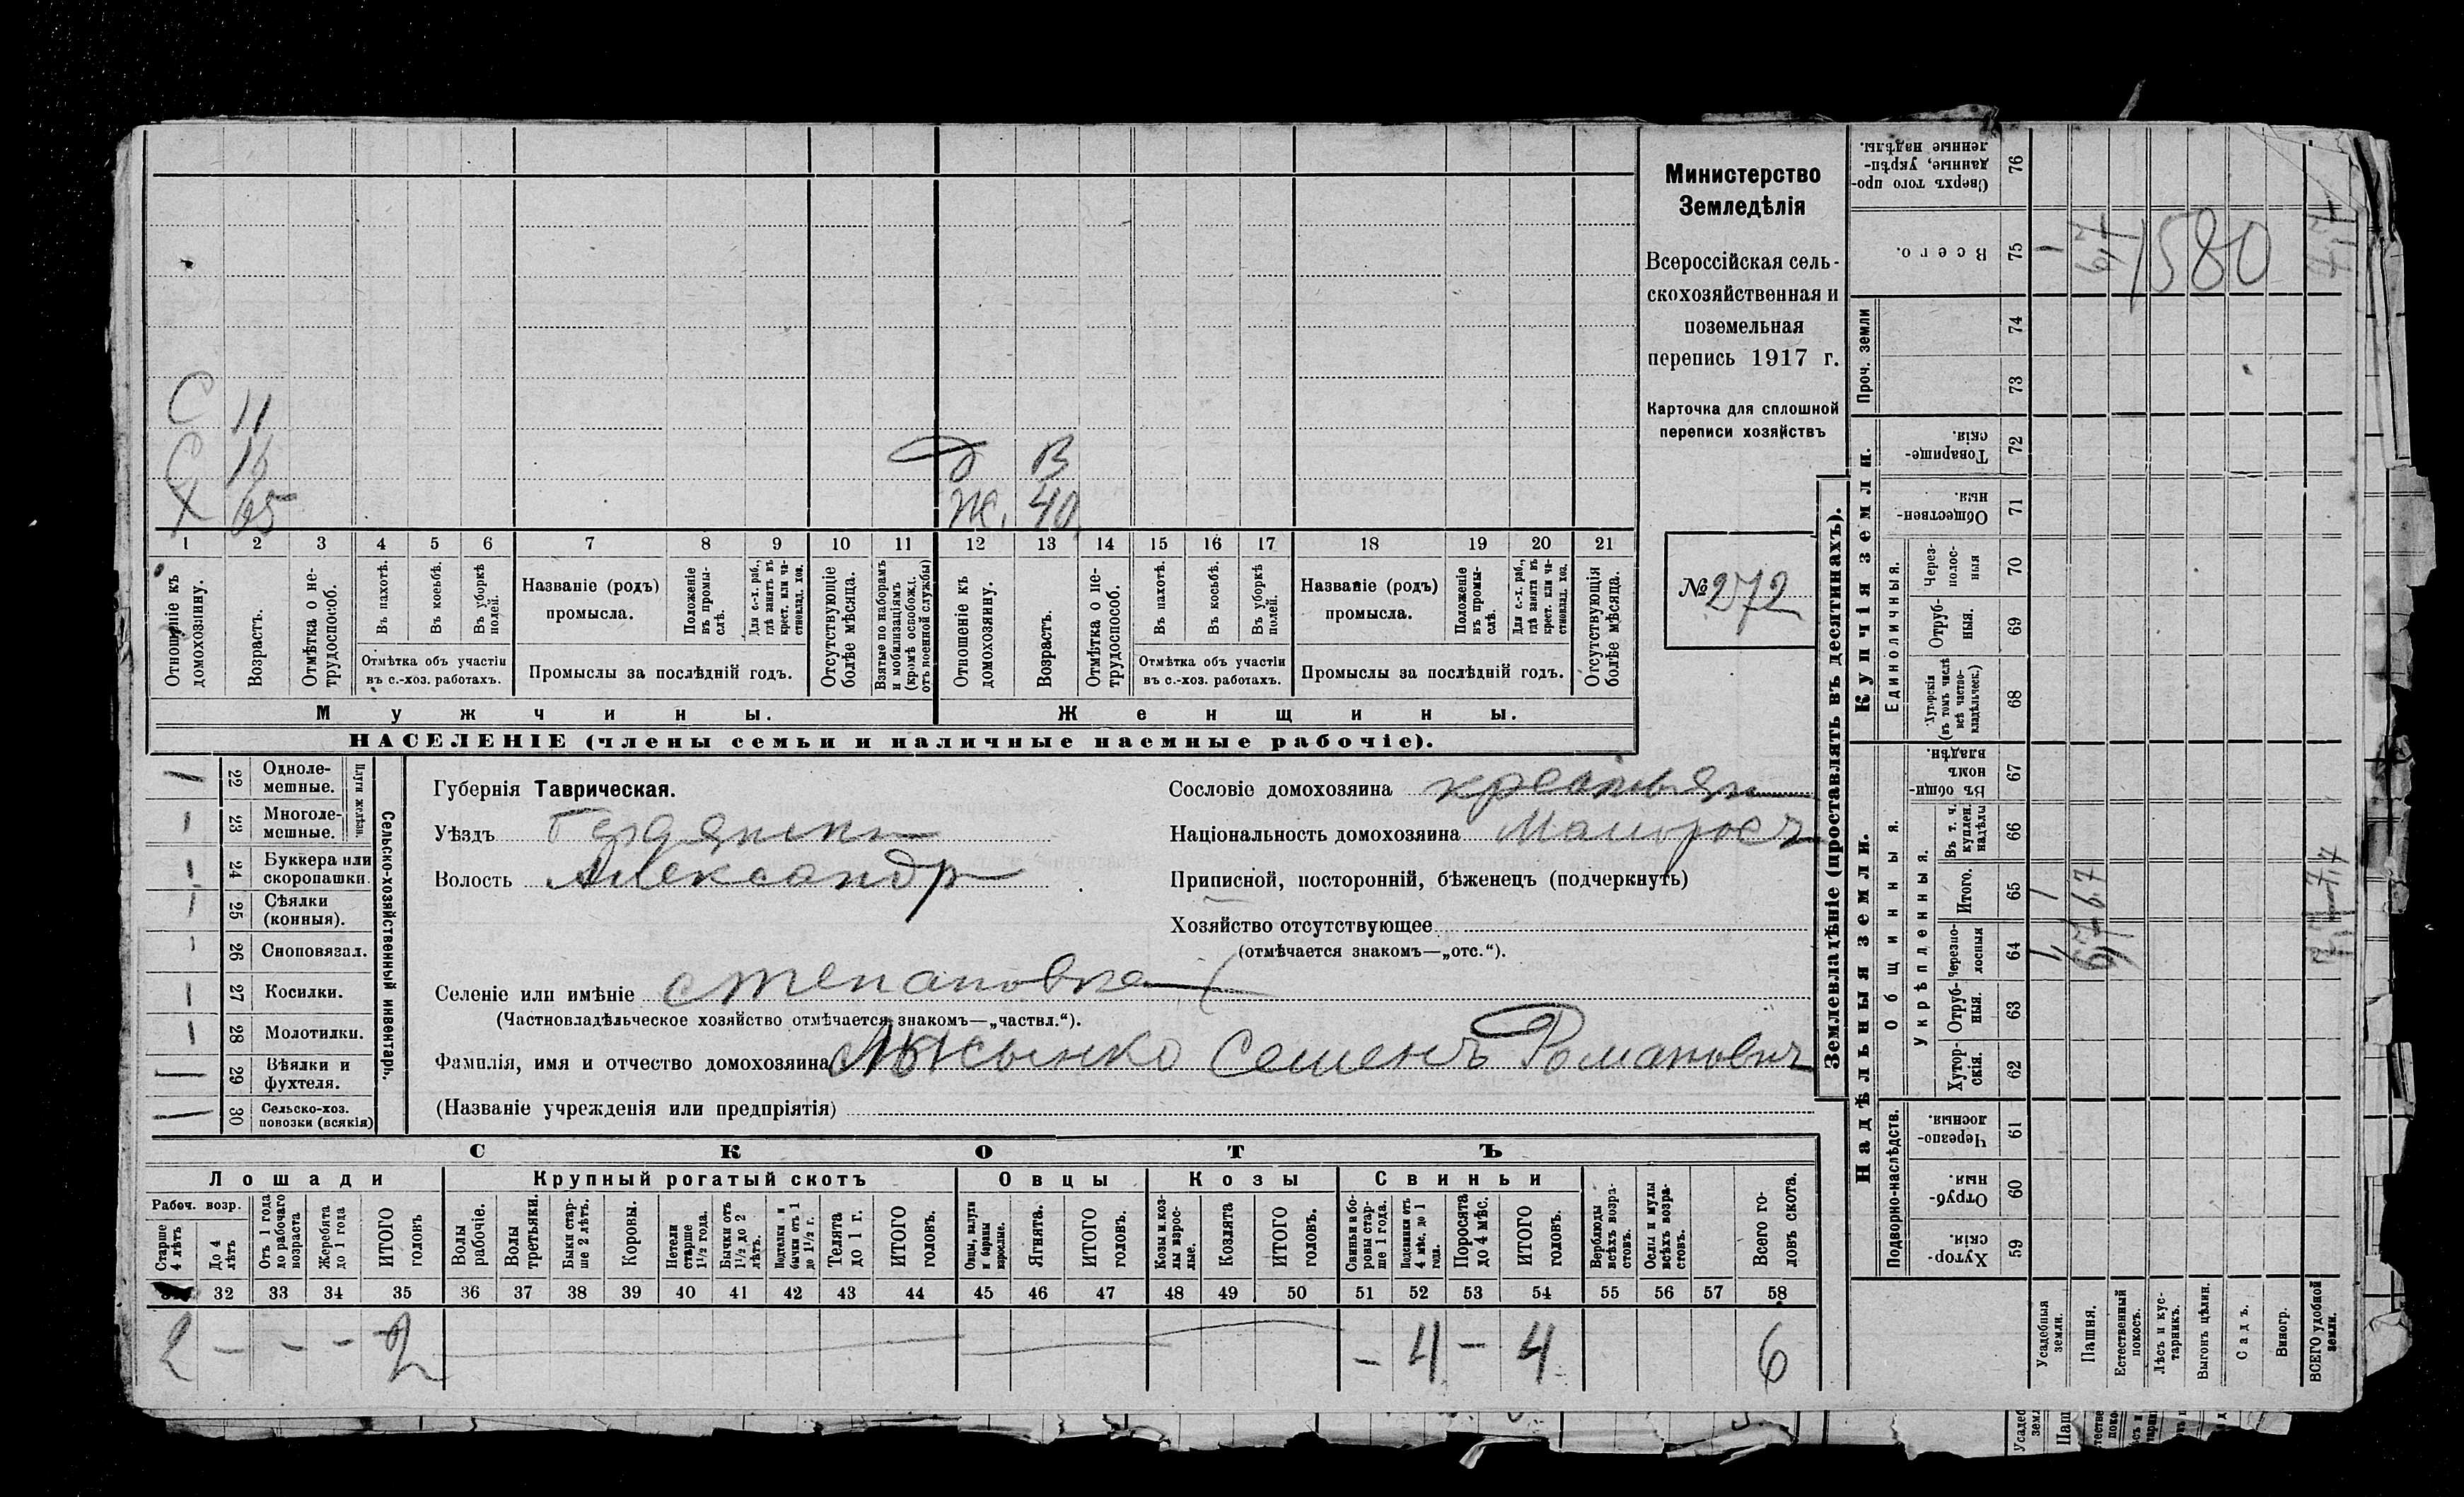 Министерство
Земледѣлія
Всероссійская сель-
скохозяйственная и
поземельная
перепись 1917 г.
Карточка для сплошной
переписи хозяйствъ
№ 272
С 11
С 16
Х 65
Д В
Ж. 40
1 2 3 4 5 6 7 8 9 10 11 12 13 14 15 16 17 18 19 20 21
Отношеніе къ домохозяину.
Возрастъ.
Отмѣтка о не-трудоспособ.
Въ пахотѣ.
Въ косьбѣ.
Въ уборкѣ полей.
Отмѣтка объ участіи
въ с.-хоз. работахъ.
Названіе (родъ)
промысла.
Положеніе въ промы-слѣ.
Для с.-х. раб., гдѣ занятъ въ крест. или ча-стновлад. хоз.
Промыслы за послѣдній годъ.
Отсутствующіе болѣе мѣсяца.
Взятые по наборамъ и мобилизаціямъ (кромѣ освобожд. отъ военной службы)
Отношеніе къ домохозяину.
Возрастъ.
Отмѣтка о не-трудоспособ.
Въ пахотѣ.
Въ косьбѣ.
Въ уборкѣ полей.
Отмѣтка объ участіи
въ с.-хоз. работахъ.
Названіе (родъ)
промысла.
Положеніе въ промы-слѣ.
Для с.-х. раб., гдѣ занятъ въ крест. или ча-стновлад. хоз.
Промыслы за послѣдній годъ.
Отсутствующія болѣе мѣсяца.
Мужчины.
Женщины.
НАСЕЛЕНІЕ (члены семьи и наличные наемные рабочіе).
Сельско-хозяйственный инвентарь.
Плуги желѣзн.
22 Одноле-мешные.
23 Многоле-мешные.
24 Буккера или скоропашки.
25 Сѣялки (конныя).
26 Сноповязал.
27 Косилки.
28 Молотилки.
29 Вѣялки и фухтеля.
30 Сельско-хоз. повозки (всякія)
Губернія Таврическая.
Уѣздъ
Волость Александр
Селеніе или имѣніе Степановка
(Частновладѣльческое хозяйство отмѣчается знакомъ—„частвл.“).
Фамилія, имя и отчество домохозяина Семенъ Романович
(Названіе учрежденія или предпріятія)
Сословіе домохозяина крестьян
Національность домохозяина Малорос
Приписной, посторонній, бѣженецъ (подчеркнуть)
Хозяйство отсутствующее
(отмѣчается знакомъ—„отс.“).
СКОТЪ
Лошади
Крупный рогатый скотъ
Овцы
Козы
Свиньи
Рабоч. возр.
Старше 4 лѣтъ
До 4 лѣтъ
Отъ 1 года до рабочаго возраста
Жеребята до 1 года
ИТОГО головъ
Волы рабочіе.
Волы третьяки.
Быки стар-ше 2 лѣтъ.
Коровы.
Нетели старше 1½ года.
Бычки отъ 1½ до 2 лѣтъ.
Подтелки и бычки отъ 1 до 1½ г.
Телята до 1 г.
ИТОГО головъ.
Овцы, валухи и бараны взрослые.
Ягнята.
ИТОГО головъ.
Козы и коз-лы взрос-лые.
Козлята
ИТОГО головъ.
Свиньи и бо-ровы стар-ше 1 года.
Подсвинки отъ 4 мѣс. до 1 года.
Поросята до 4 мѣс.
ИТОГО головъ.
Верблюды всѣхъ возра-стовъ.
Ослы и мулы всѣхъ возра-стовъ.
Всего го-ловъ скота.
32 33 34 35 36 37 38 39 40 41 42 43 44 45 46 47 48 49 50 51 52 53 54 55 56 57 58
2 – – – 2 – 4 – 4 6
Землевладѣніе (проставлять въ десятинахъ).
Надѣльныя земли.
Купчія земли.
Проч. земли
Подворно-наслѣдств.
Общинныя.
Укрѣпленныя.
Единоличныя.
Сверхъ того про-данные, укрѣп-ленные надѣлы. 76
Всего. 75
74
73
Товарище-скія. 72
Обществен-ныя. 71
Через-полос-ныя 70
Отруб-ныя. 69
Хуторскія (въ томъ числѣ всѣ частно-владѣльческ.) 68
Въ общин-номъ владѣн. 67
Въ т. ч. куплен. надѣлы 66
Итого. 65
Черезпо-лосныя 64
Отруб-ныя. 63
Хутор-скія. 62
Черезпо-лосныя. 61
Отруб-ныя. 60
Хутор-скія. 59
Усадебныя земли.
Пашня.
Естественный покосъ.
Лѣсъ и кус-тарникъ.
Выгонъ цѣлин.
Садъ.
Виногр.
ВСЕГО удобной земли.
1 67
1580
1 67
1 67